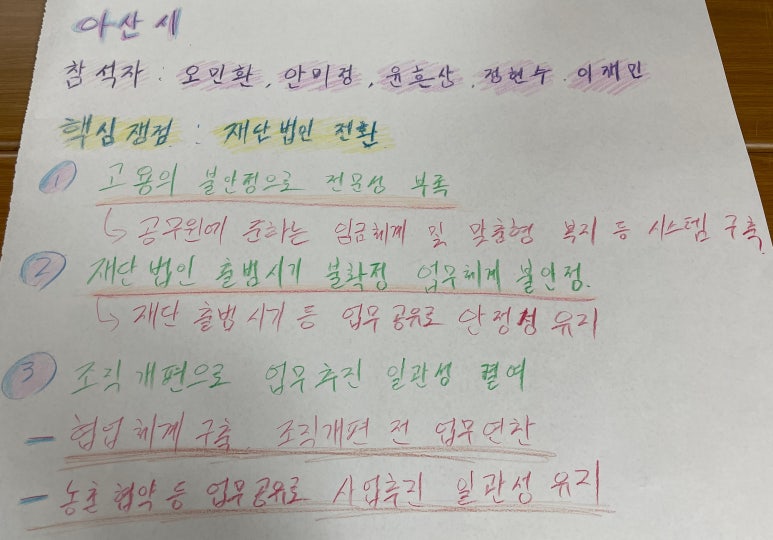 아산시
참석자 : 오민환, 안미정, 윤흔상, 정현수, 이재민
핵심쟁점 : 재단법인 전환
① 고용의 불안정으로 전문성 부족
↳ 공무원에 준하는 임금체계 및 맞춤형 복지 등 시스템 구축
② 재단법인 출범시기 불확정 업무체계 불안정.
↳ 재단 출범시기 등 업무공유로 안정성 유지
③ 조직개편으로 업무추진 일관성 결여
- 협업체계 구축, 조직개편 전 업무연찬
- 농촌협약 등 업무공유로 사업추진 일관성 유지